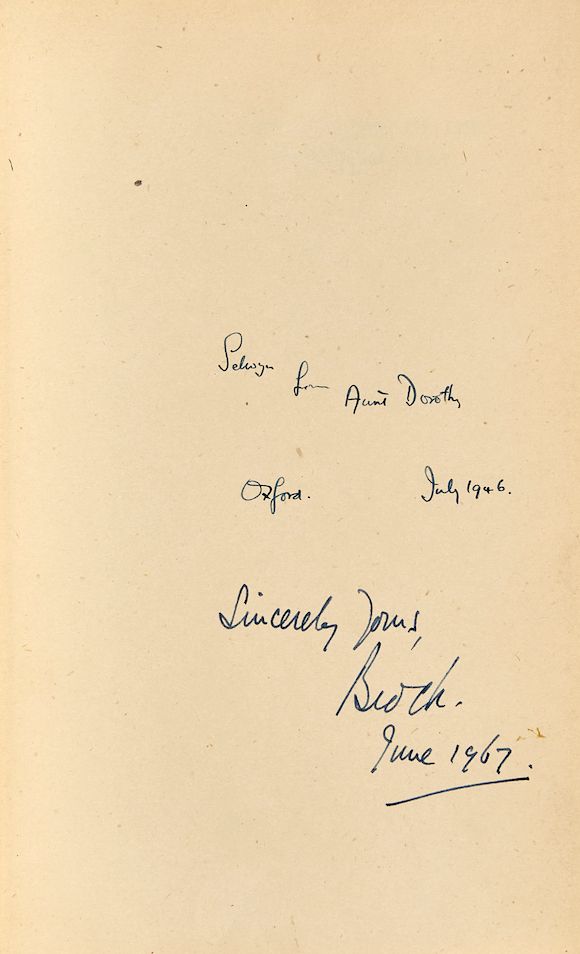 Selwyn from Aunt Dorothy
Oxford. July 1946.
Sincerely Yours,
June 1967.